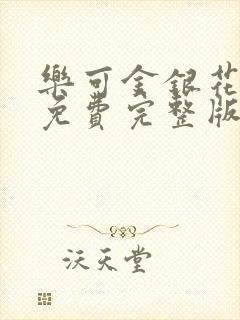 樂可金銀花
免費完整版
沃天堂